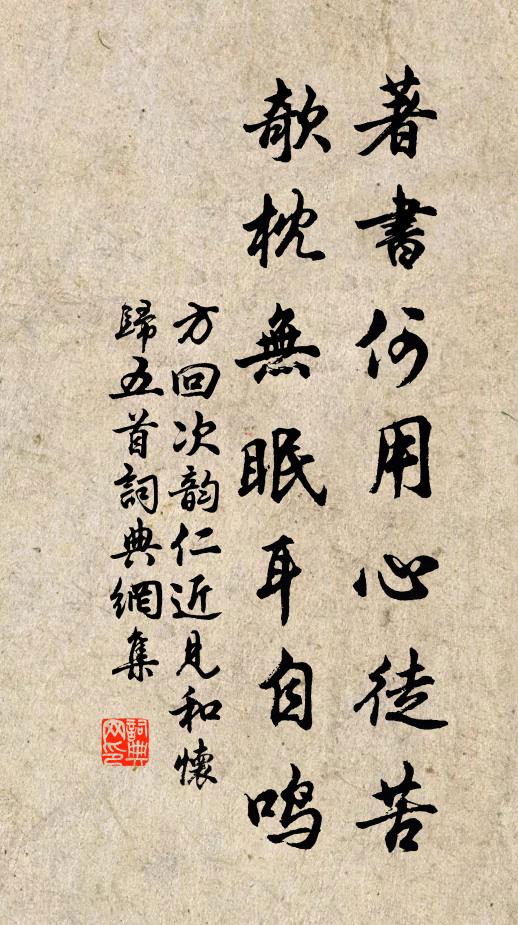 著書何用心徒苦
欹枕無眠耳自鳴
方回次韵仁近見和懷
歸五首詞典網集
詞典网印